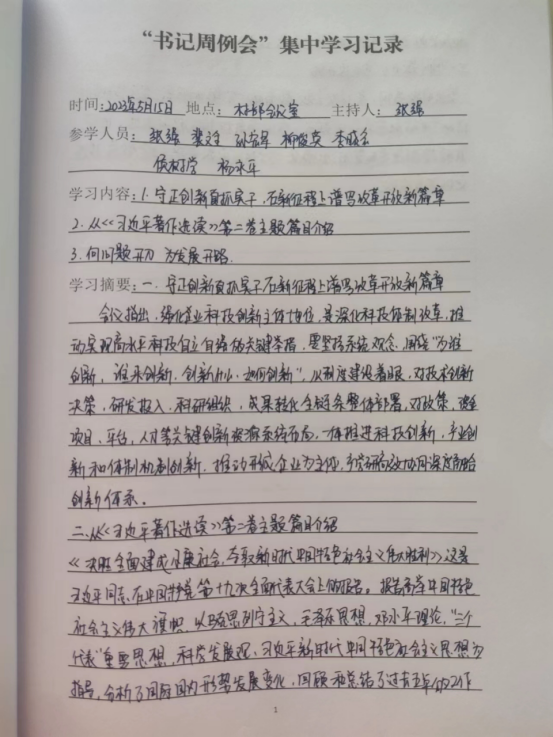 “书记周例会”集中学习记录
时间:2023年5月15日 地点: 村部会议室 主持人: 张强
参学人员: 张强
杨永平
学习内容:1.守正创新真抓实干,在新征程上谱写改革开放新篇章
2.从《习近平著作选读》第二卷主题篇目介绍
3.向问题开刀 为发展开路.
学习摘要:一、守正创新真抓实干在新征程上谱写改革开放新篇章
会议指出,强化企业科技创新主体地位,是深化科技体制改革,推
动实现高水平科技自立自强的关键举措,要坚持系统观念,围绕“为谁
创新,谁来创新,创新什么,如何创新”,从制度建设着眼,对技术创新
决策,研发投入,科研组织,成果转化全链条整体部署,对政策,资金
项目,平台,人才等关键创新资源系统布局,一体推进科技创新,产业创
新和体制机制创新,推动形成企业为主体,产学研高效协同深度融合
创新体系。
二.从《习近平著作选读》第二卷主题篇目介绍
《决胜全面建成小康社会,夺取新时代中国特色社会主义伟大胜利》这是
习近平同志在中国共产党第十九次全国代表大会上的报告。报告高举中国特色
社会主义伟大旗帜,以马克思列宁主义,毛泽东思想,邓小平理论,“三个
代表”重要思想,科学发展观,习近平新时代中国特色社会主义思想为
指导,分析了国际国内形势发展变化,回顾和总结了过去五年的工作
1